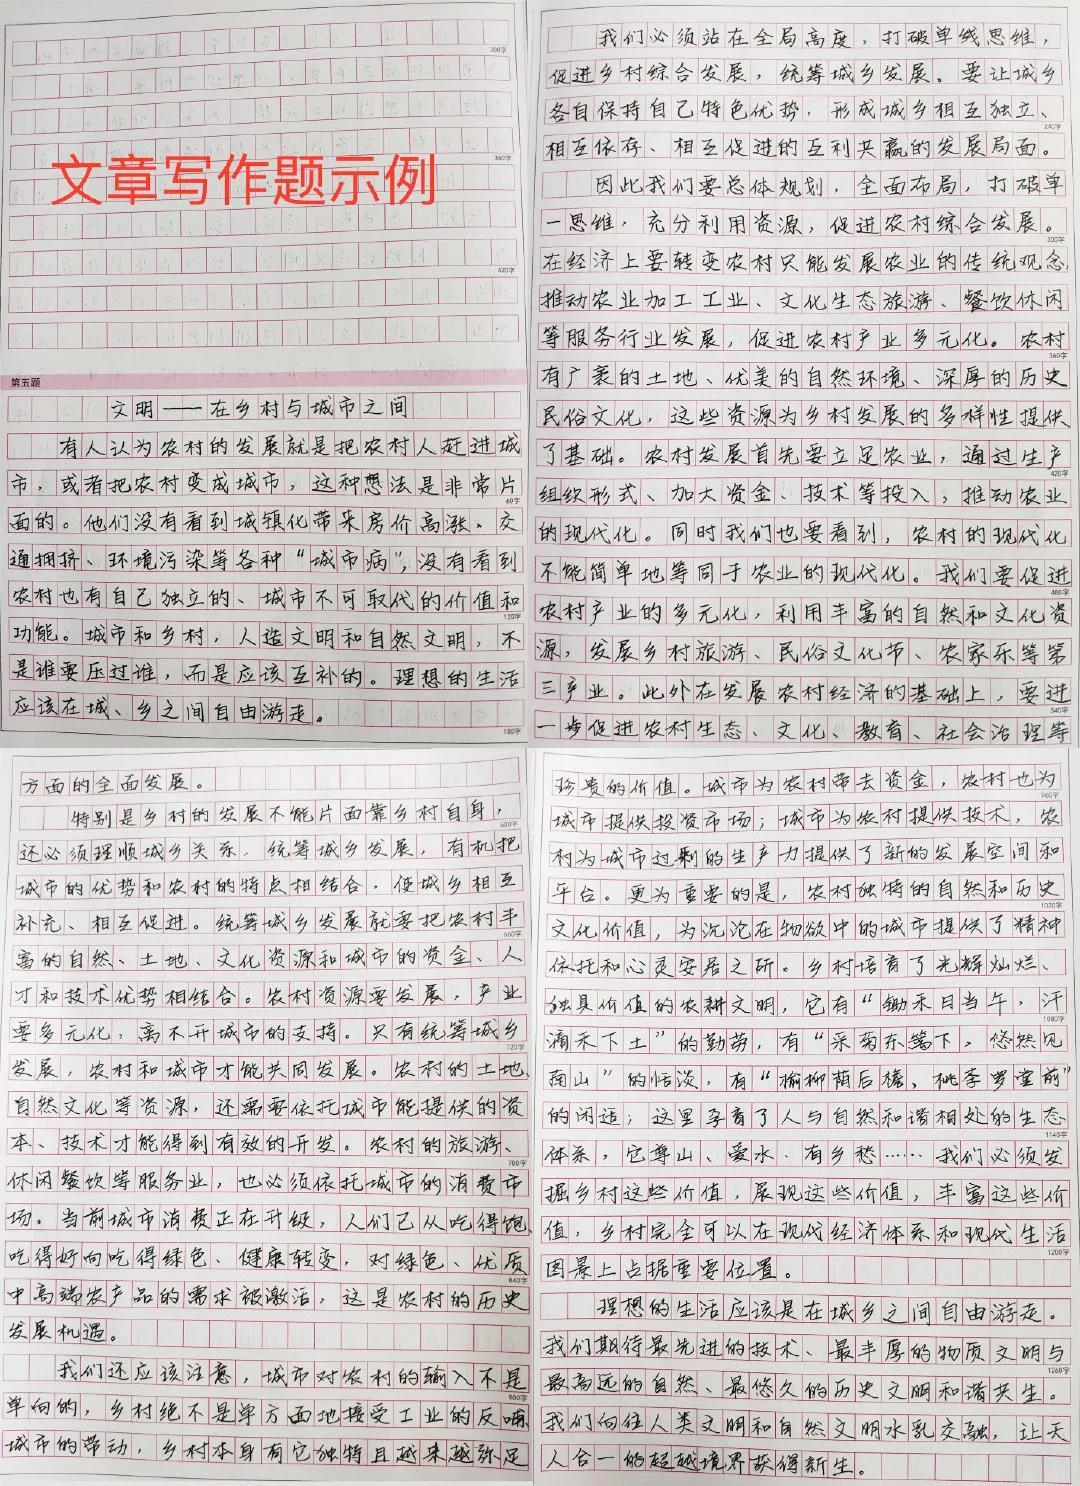 300字
360字
文章写作题示例
420字
第五题
文明——在乡村与城市之间
有人认为农村的发展就是把农村人赶进城
市,或者把农村变成城市,这种想法是非常片
60字
面的。他们没有看到城镇化带来房价高涨、交
通拥挤、环境污染等各种“城市病”,没有看到
农村也有自己独立的、城市不可取代的价值和
120字
功能。城市和乡村,人造文明和自然文明,不
是谁要压过谁,而是应该互补的。理想的生活
应该在城、乡之间自由游走。
180字
我们必须站在全局高度,打破单线思维,
促进乡村综合发展,统筹城乡发展。要让城乡
各自保持自己特色优势,形成城乡相互独立、
240字
相互依存、相互促进的互利共赢的发展局面。
因此我们要总体规划,全面布局,打破单
一思维,充分利用资源,促进农村综合发展。
300字
在经济上要转变农村只能发展农业的传统观念
推动农业加工工业、文化生态旅游、餐饮休闲
等服务行业发展,促进农村产业多元化。农村
360字
有广袤的土地、优美的自然环境、深厚的历史
民俗文化,这些资源为乡村发展的多样性提供
了基础。农村发展首先要立足农业,通过生产
420字
组织形式、加大资金、技术等投入;推动农业
的现代化。同时我们也要看到,农村的现代化
不能简单地等同于农业的现代化。我们要促进
480字
农村产业的多元化,利用丰富的自然和文化资
源,发展乡村旅游、民俗文化节、农家乐等第
三产业。此外在发展农村经济的基础上,要进
540字
一步促进农村生态、文化、教育、社会治理等
方面的全面发展。
特别是乡村的发展不能片面靠乡村自身,
600字
还必须理顺城乡关系,统筹城乡发展,有机把
城市的优势和农村的特点相结合,使城乡相互
补充、相互促进。统筹城乡发展就要把农村丰
660字
富的自然、土地、文化资源和城市的资金、人
才和技术优势相结合。农村资源要发展,产业
要多元化,离不开城市的支持。只有统筹城乡
720字
发展,农村和城市才能共同发展。农村的土地、
自然文化等资源,还需要依托城市能提供的资
本、技术才能得到有效的开发。农村的旅游、
780字
休闲餐饮等服务业,也必须依托城市的消费市
场。当前城市消费正在升级,人们已从吃得饱、
吃得好向吃得绿色、健康转变,对绿色、优质
840字
中高端农产品的需求被激活,这是农村的历史
发展机遇。
我们还应该注意,城市对农村的输入不是
900字
单向的,乡村绝不是单方面地接受工业的反哺
城市的带动,乡村本身有它独特且越来越弥足
珍贵的价值。城市为农村带去资金,农村也为
960字
城市提供投资市场;城市为农村提供技术,农
村为城市过剩的生产力提供了新的发展空间和
平台。更为重要的是,农村独特的自然和历史
1020字
文化价值,为沉沦在物欲中的城市提供了精神
依托和心灵安居之所。乡村培育了光辉灿烂、
独具价值的农耕文明,它有“锄禾日当午,汗
1080字
滴禾下土”的勤劳,有“采菊东篱下,悠然见
南山”的恬淡,有“榆柳荫后檐,桃李罗堂前”
的闲适;这里孕育了人与自然和谐相处的生态
1140字
体系,它尊山、爱水、有乡愁……我们必须发
掘乡村这些价值,展现这些价值,丰富这些价
值,乡村完全可以在现代经济体系和现代生活
1200字
图景上占据重要位置。
理想的生活应该是在城乡之间自由游走。
我们期待最先进的技术、最丰厚的物质文明与
1260字
最高远的自然、最悠久的历史文明和谐共生。
我们向往人类文明和自然文明水乳交融,让天
人合一的超越境界获得新生。